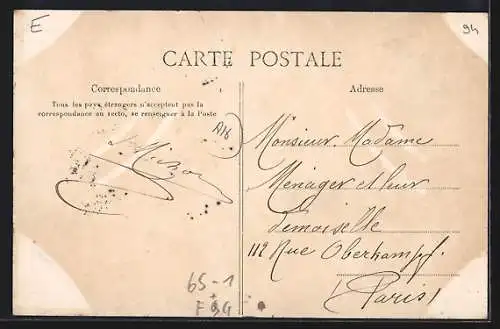 E
94
CARTE POSTALE
Correspondance
Tous les pays étrangers n'acceptent pas la
correspondance au recto, se renseigner à la Poste
A16
Adresse
Monsieur Madame
Ménager et leur
demoiselle
112 Rue Oberkampf.
Paris
65-1
F